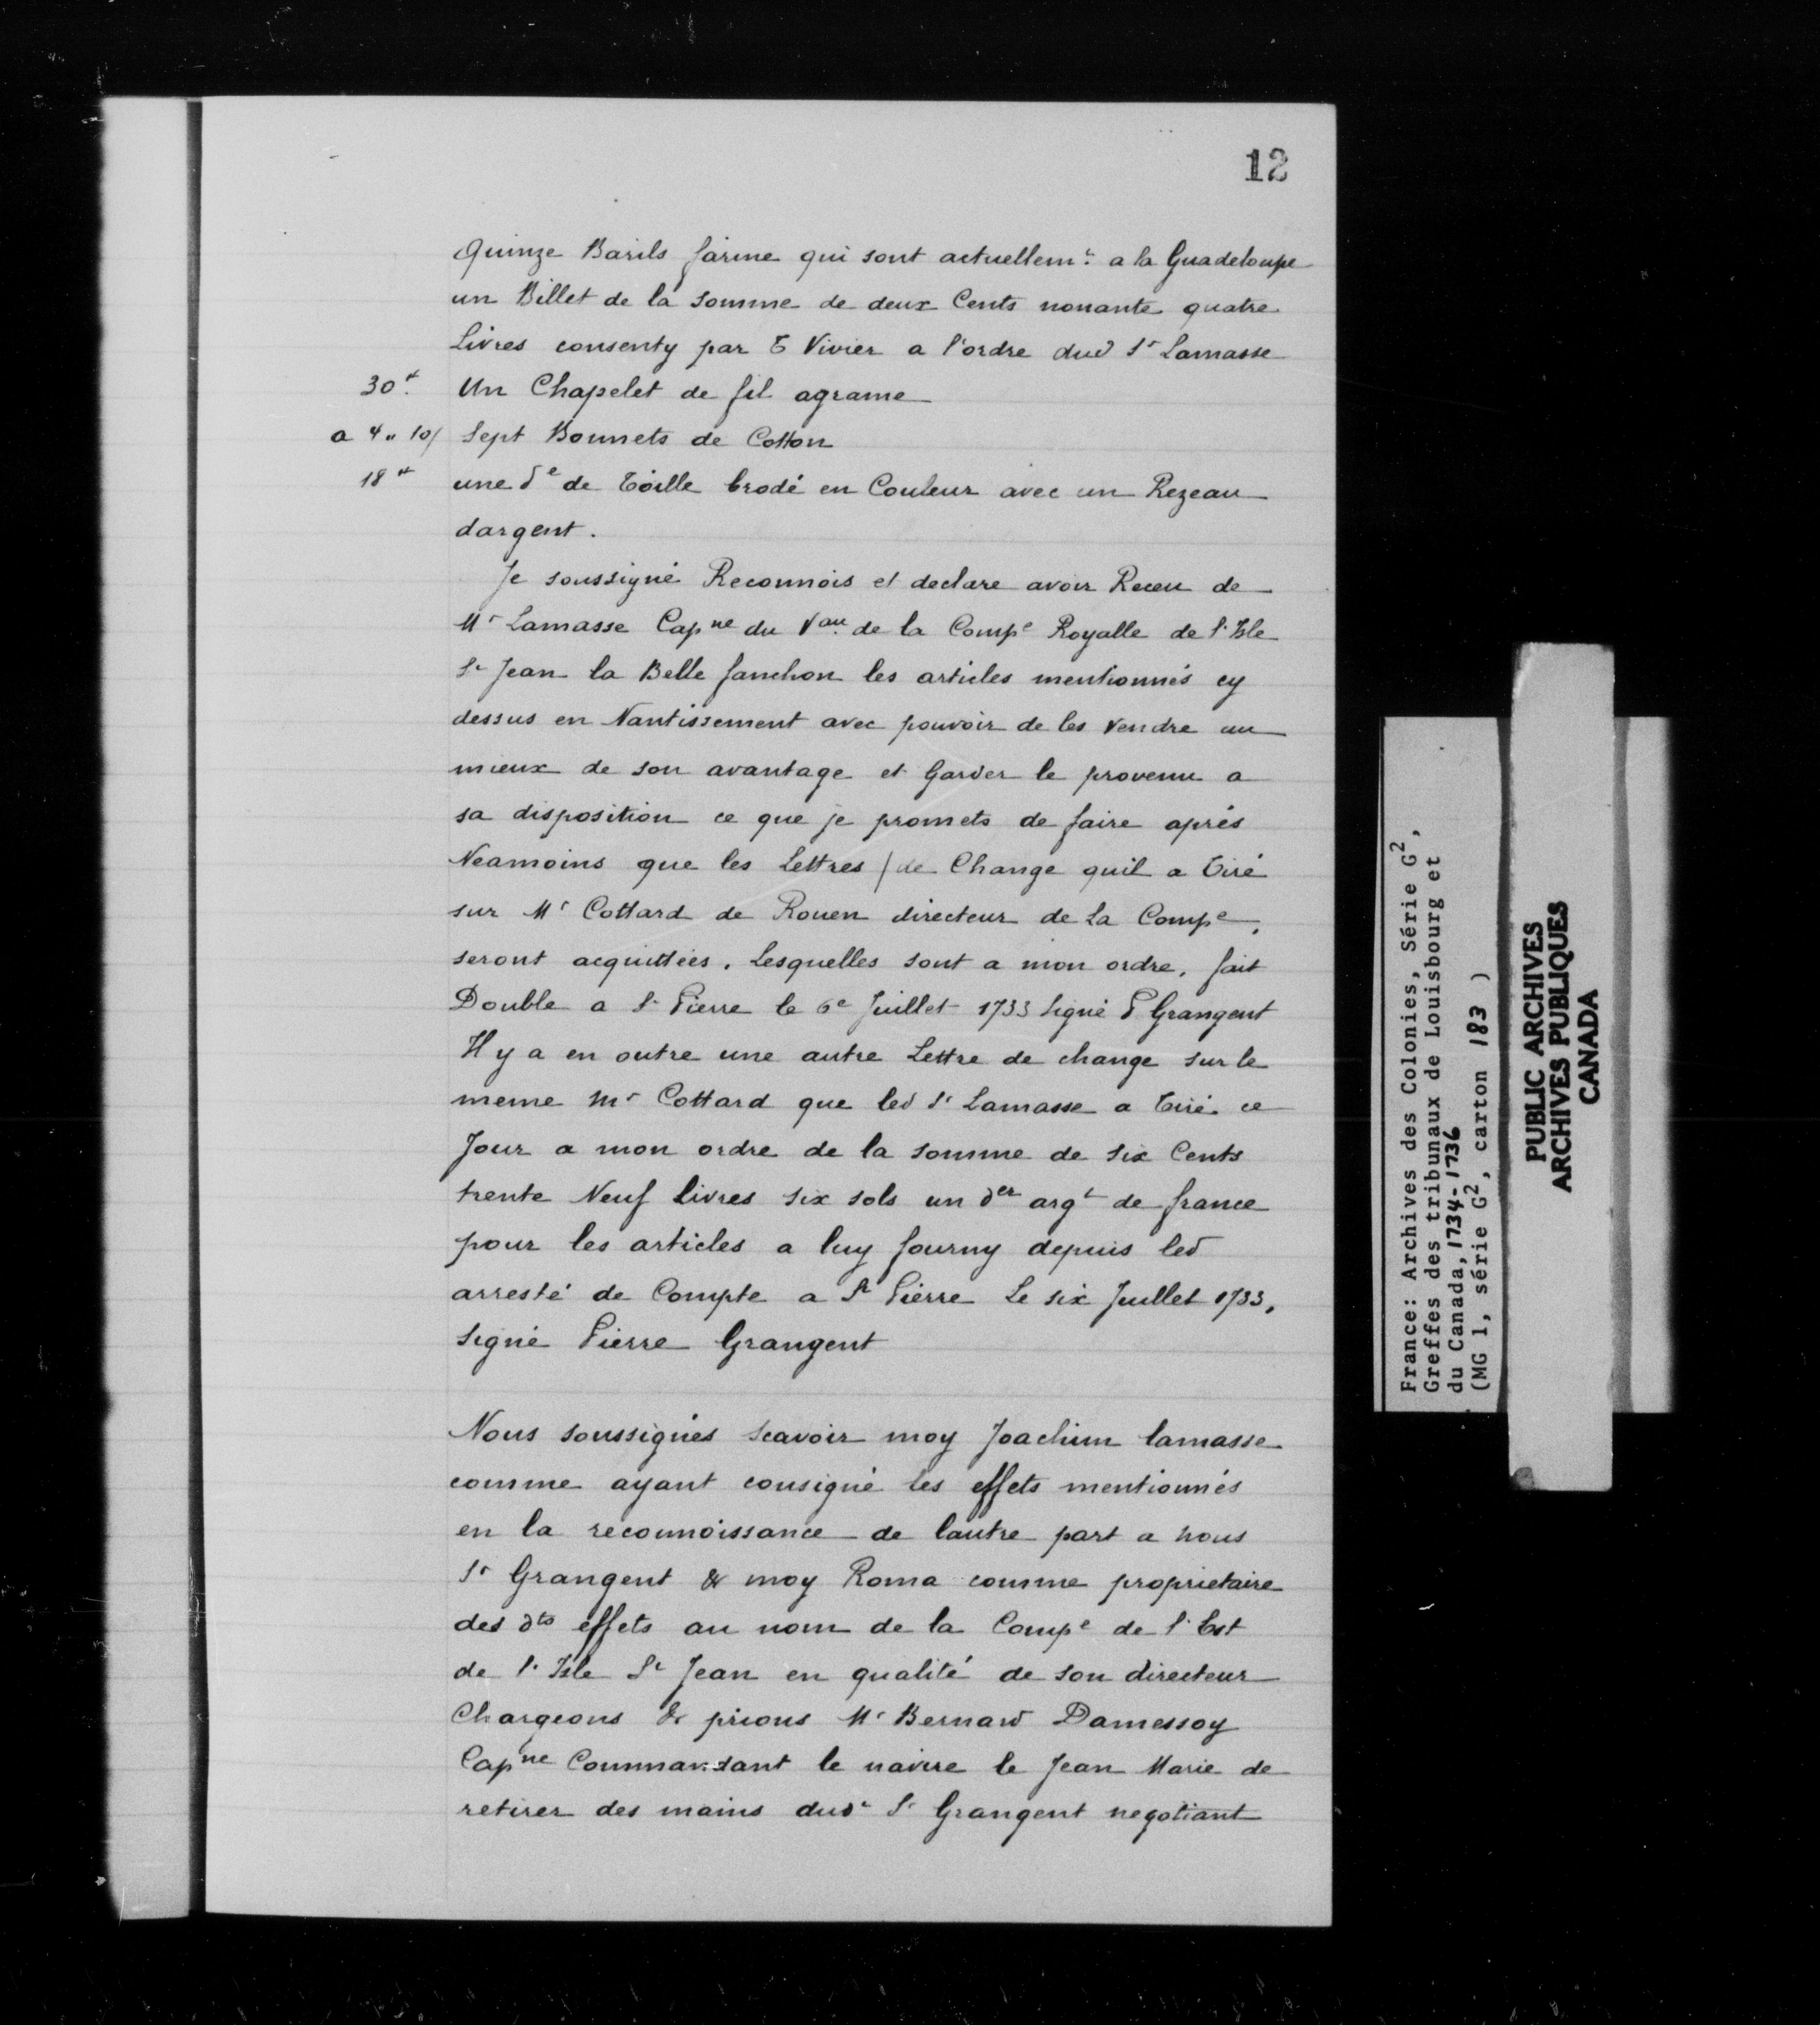 12
Quinze Barils farine qui sont actuellemt. a la Guadeloupe
un Billet de la somme de deux Cents nonante quatre
Livres consenty par T Vivier a l'ordre dud Sr Lamasse
30# Un Chapelet de fil agrame
a 4" 10/ Sept Bonnets de Cotton
18# une de de Toille brodé en Couleur avec un Rezeau
dargent.
Je soussigné Reconnois et declare avoir Receu de
Mr Lamasse Capne du Vau. de la Compe Royalle de l'Isle
St Jean la Belle fanchon les articles mentionnés cy
dessus en Nantissement avec pouvoir de les vendre au
mieux de son avantage et Garder le provenu a
sa disposition ce que je promets de faire aprés
Neamoins que les Lettres / de Change quil a Tiré
sur Mr Cottard de Rouen directeur de La Compe,
seront acquittées. Lesquelles sont a mon ordre, fait
Double a St Pierre le 6e Juillet 1733 Signé P Grangent
Il y a en outre une autre Lettre de change sur le
meme Mr Cottard que led Sr Lamasse a Tiré ce
Jour a mon ordre de la somme de six Cents
trente Neuf livres six sols un der argt de france
pour les articles a luy fourny depuis led
arresté de Compte a St Pierre Le six Juillet 1733,
signé Pierre Grangent
Nous soussignés scavoir moy Joachim lamasse
comme ayant consigné les effets mentionnés
en la reconnoissance de lautre part a nous
Sr Grangent & moy Roma comme proprietaire
des dts effets au nom de la Compe de l'Est
de l'Isle St Jean en qualité de son directeur
Chargeons & prions Mr Bernard Damessoy
Capne Commandant le navire le Jean Marie de
retirer des mains dudt Sr Grangent negotiant
France: Archives des Colonies, Série G2,
Greffes des tribunaux de Louisbourg et
du Canada, 1734-1736
(MG 1, série G2, carton 183 )
PUBLIC ARCHIVES
ARCHIVES PUBLIQUES
CANADA